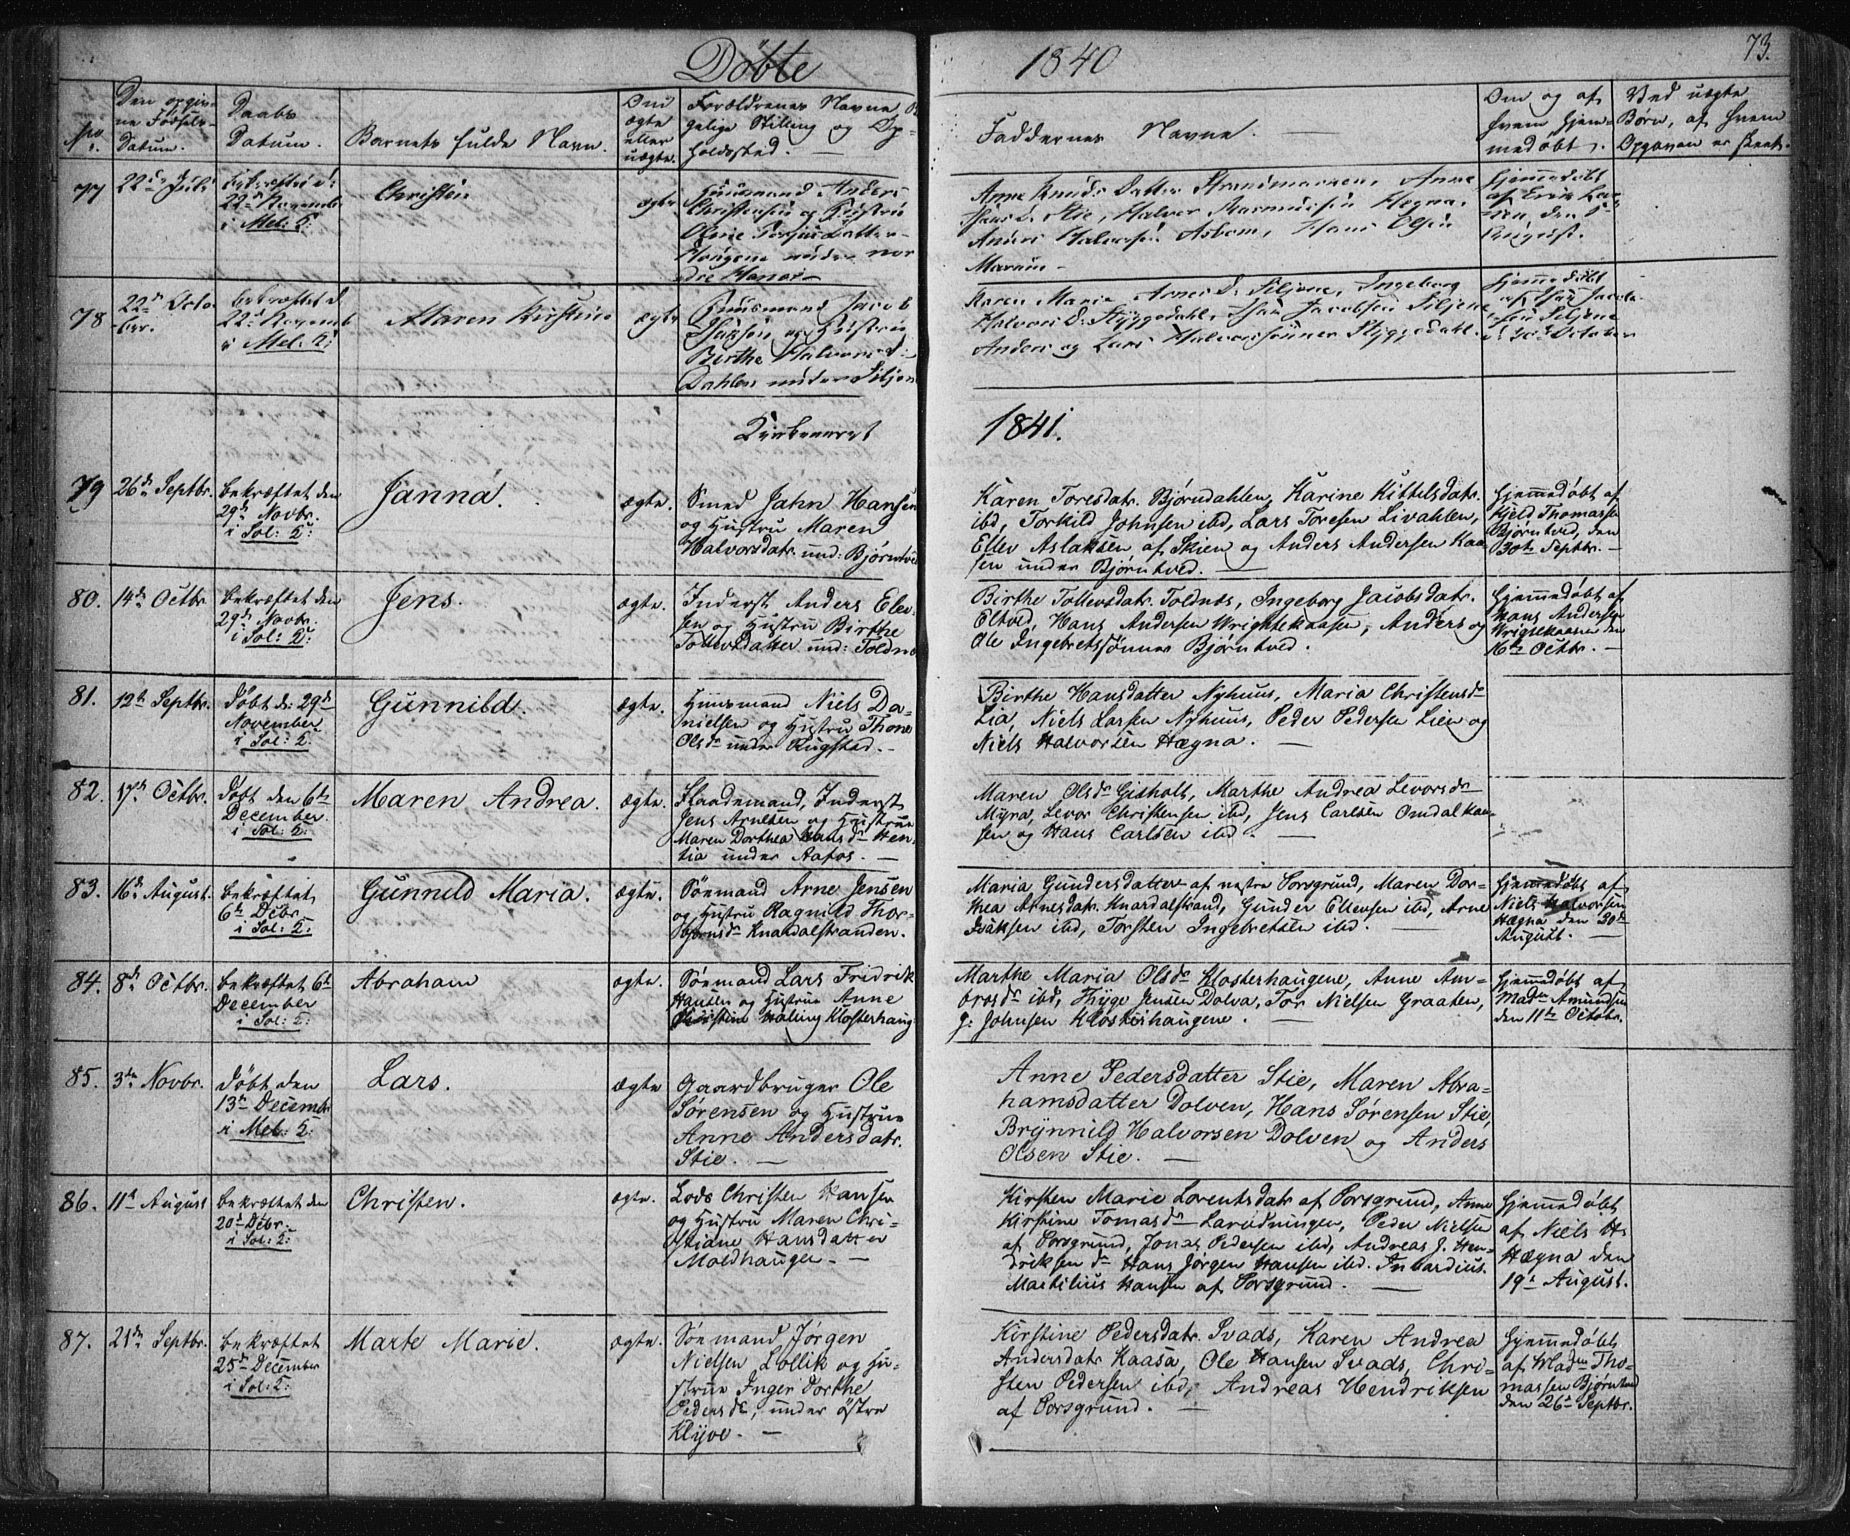 Döbte 1840 73.
No. Den opgivne Fødsels-Datum. Daabs Datum. Barnets fulde Navn. Om ægte eller uægte. Forældrenes Navne, Stilling og Opholdssted.
Faddernes Navne. Om og af hvem hjemmedøbt. Ved uægte Børn, af hvem Opgaven er skeet.
77 22de Juli
bekræftet d:
22d Novemb
i Mel: K:
Christen
ægte
Huusmand Anders
Christensen og Hustru
Anne Knuds Datter
Anders Halvorsen
Hans Olsen
Hjemmedøbt
August.
78 22de Octo-
ber.
bekræftet d.
22d Novemb
i Mel: K:
Maren Kirstine
ægte
Huusmand Jacob
og Hustru
Birthe Halvorsd:
Dahlen under Siljan
Karen Marie Arnes D. Siljene, Ingeborg
Halvors D: Jacobsen Siljene
Anders og Lars Halvorssønner
Hjemmedøbt
Siljene
October
Kirkeaaret 1841.
79 26de Septbr.
bekræftet den
29de Novbr.
i Sol: K:
Janna.
ægte.
Smed Jahn Hansen
og Hustru Maren
Halvorsdatr. und: Bjørntvedt
Karen Toresdatr. Bjørndahlen, Karine Kittelsdatr.
ibd, Torkild Johnsen ibd, Lars Toresen Livahlen,
Ellev Aslaksen af Skien og Anders Andersen Kaa-
sen under Bjørntved. —
Hjemmedøbt af
Kjeld Thomasse
Bjørntved, den
30te Septbr. —
80. 14de Octbr.
bekræftet den
29de Novbr.
i Sol: K:
Jens.
ægte.
Inderst Anders Elev-
sen og Hustru Birthe
Tollevsdatter und: Toldnæs
Birthe Tollevsdatr. Toldnæs, Ingeborg Jacobsdatr.
Eltved, Hans Andersen Wrigstekaasen, Anders og
Ole Ingebretssønner Bjørntved.
Hjemmedøbt af
Hans Andersen
Wrigstekaasen den
16de Octbr. —
81. 12te Septbr.
Døbt d: 29de
November
i Sol: K:
Gunnild.
ægte.
Huusmand Niels Da-
nielsen og Hustru Thone
Olsdr under Rugstad. —
Birthe Hansdatter Nyhuus, Maria Christensdr
Lia, Niels Larsen Nyhuus, Peder Pedersen Lien og
Niels Halvorsen Hægna. —
82. 17de Octbr.
Døbt den 6te
December.
i Sol: K:
Maren Andrea.
ægte.
Flaademand, Inderst
Jens Arnesen og Hustrue
Maren Dorthea Hansdr Hen-
tia under Aafos. —
Maren Olsdr Gisholt, Marthe Andrea Levorsdr
Myra, Levor Christensen ibd, Jens Carlsen Omdalkaa-
sen og Hans Carlsen ibd —
83. 16de August.
bekræftet
6te Decbr.
i Sol: K:
Gunnild Maria.
ægte.
Sømand Arne Jensen
og Hustru Ragnild Thor-
bjørnsdr Knardalstranden.
Maria Gundersdatter af vestre Porsgrund, Maren Dor-
thea Arnesdatr. Knardalstrand, Gunder Ellevsen ibd, Arne
Isaksen ibd, Torsten Ingebretsen ibd. —
Hjemmedøbt af
Niels Halvorsen
Hægna den 30de
August. —
84. 8de Octbr.
bekræftet 6te
December
i Sol: K:
Abraham
ægte.
Sømand Lars Fridrik
Hansen og Hustrue Anne
Kirstine Haling Klosterhaug
Marthe Maria Olsdr Klosterhaugene, Anne Am-
brosdr ibd, Thyge Jensen Dolva, Tor Nielsen Graaten,
J: Johnsen Klosterhaugene. —
Hjemmedøbt af
Madm Amundsen
den 11te Octobr.
85. 3de Novbr.
Døbt den
13de Decembr
i Mel: K:
Lars.
ægte
Gaardbruger Ole
Sørensen og Hustrue
Anne Andersdatr.
Stie. —
Anne Pedersdatter Stie, Maren Abra-
hamsdatter Dolven, Hans Sørensen Stie,
Brynnild Halvorsen Dolven og Anders
Olsen Stie. —
86. 11te August
bekræftet den
20de Decbr.
i Sol: K:
Christen.
ægte.
Lods Christen Hansen
og Hustru Maren Chri-
stiane Hansdatter
Moldhaugen. —
Kirsten Marie Lorentsdatr af Porsgrund, Anne
Kirstine Tomasdr Larødningen, Peder Nielsen
af Porsgrund, Jonas Pedersen ibd, Andreas J. Hen-
driksen dr Hans Jørgen Hansen ibd.
Martilius Hansen af Porsgrund. —
Hjemmedøbt
af Niels H.
Hægna den
19de August.
87. 21de Septbr.
bekræftet
25de December
i Sol: K:
Marte Marie.
ægte.
Sømand Jørgen
Nielsen Lollik og Hu-
strue Inger Dorthe
Pedersdr, under østre
Klyve. —
Kirstine Pedersdatr. Svads, Karen Andrea
Andersdatr Kaasa, Ole Hansen Svads, Chri-
sten Pedersen ibd, Andreas Hendriksen
af Porsgrund. —
Hjemmedøbt
af Madm Tho-
massen Bjørntved
den 26de Septbr.